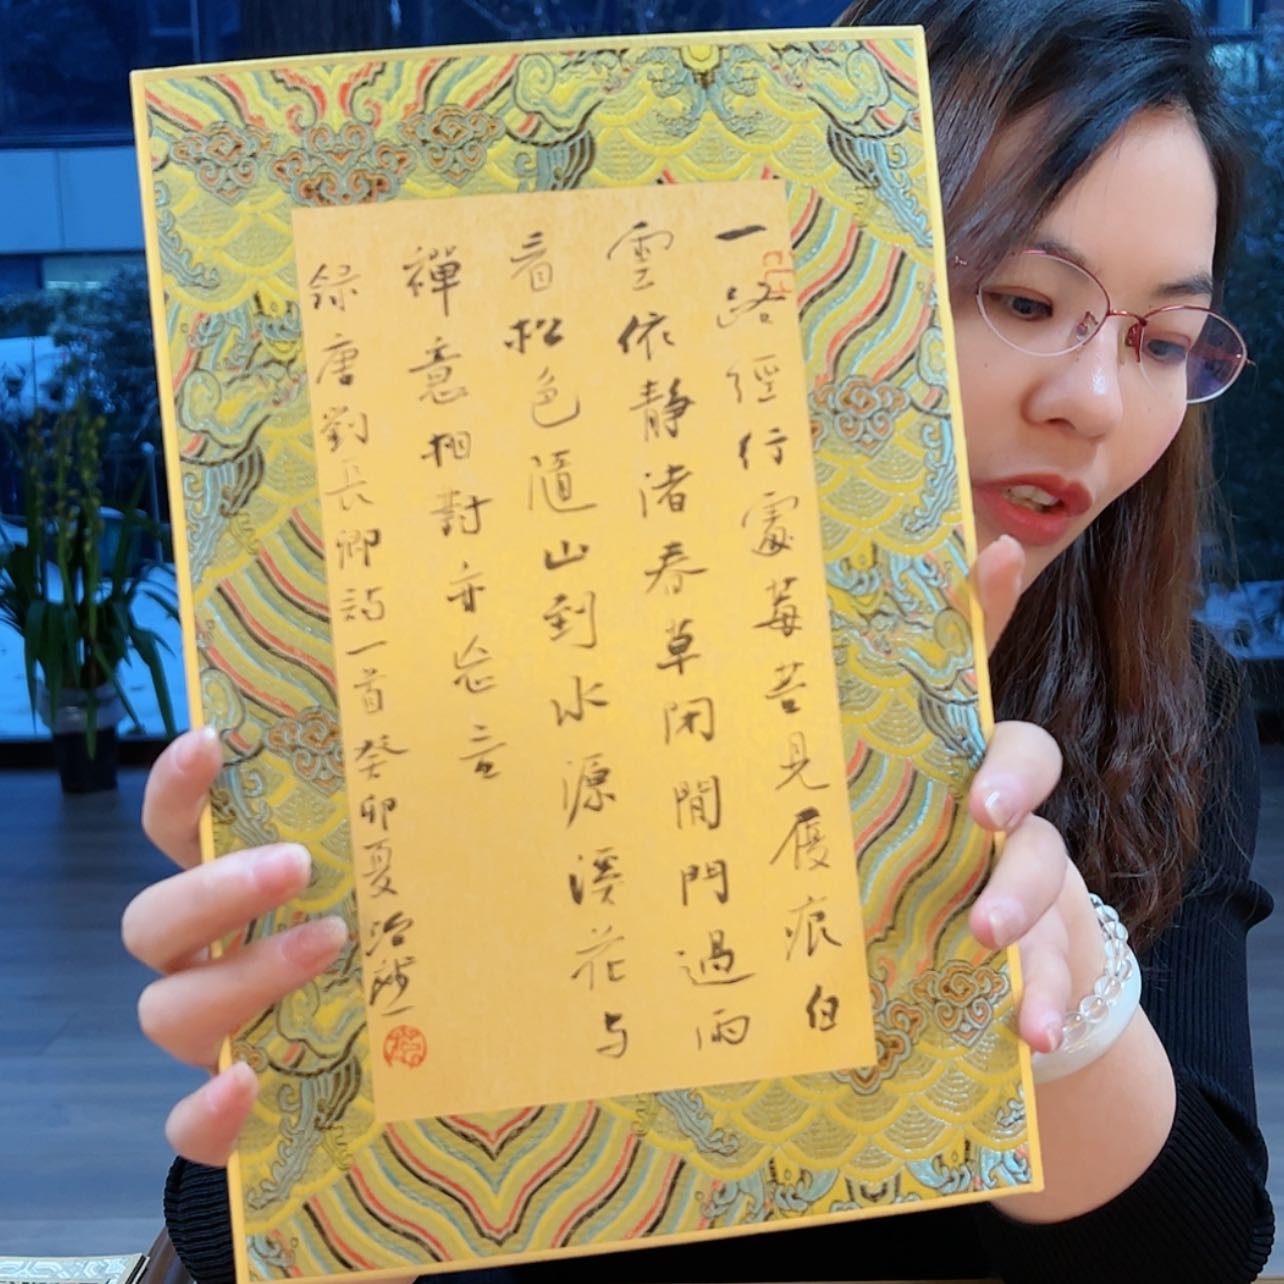 一路經行處莓苔見履痕白
雲依靜渚春草閉閒門過雨
看松色隨山到水源溪花与
禪意相對亦忘言
録唐劉長卿詩一首癸卯夏